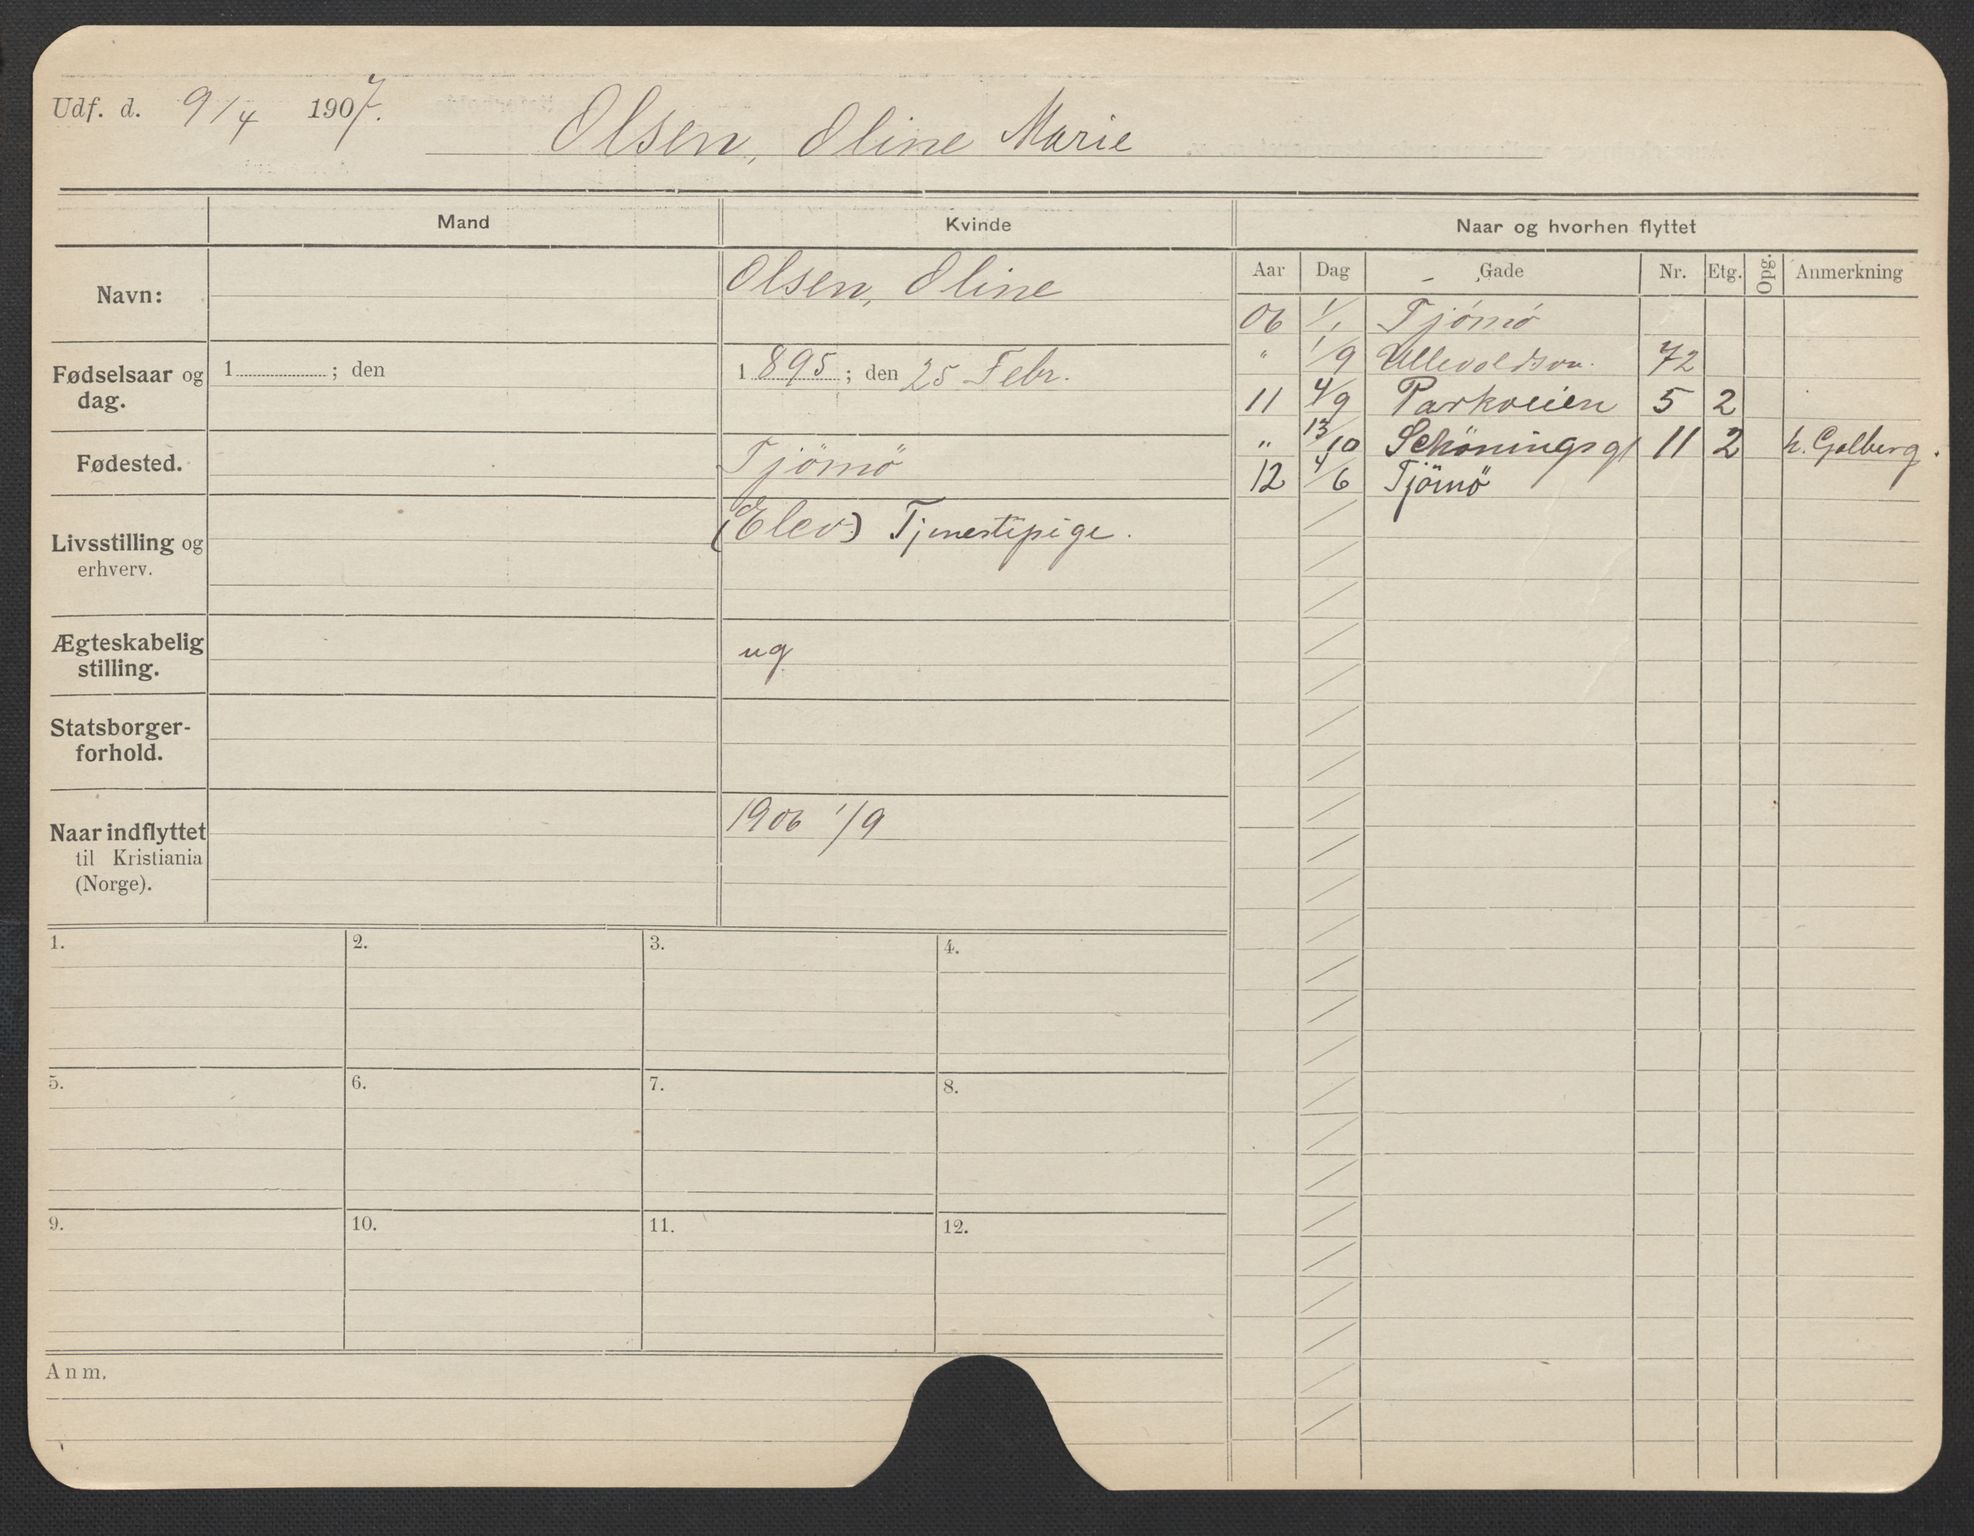 Udf. d. 9/4 1907.
Olsen, Oline Marie
Mand
Kvinde
Naar og hvorhen flyttet
Navn:
Olsen, Oline
Fødselsaar og dag.
1 ; den
1895 ; den 25 Febr.
Fødested.
Tjömö
Livsstilling og erhverv.
(Elev) Tjenestepige.
Ægteskabelig stilling.
ug
Statsborger-
forhold.
Naar indflyttet
til Kristiania
(Norge).
1906 1/9
Aar Dag Gade Nr. Etg. Opg. Anmerkning
06 1/1 Tjómó
" 1/9 Ullevoldsvn. 72
11 4/9 Parkveien 5 2
" 13/10 Schöningsgt 11 2 h. Golberg.
12 4/6 Tjömö
1.
2.
3.
4.
5.
6.
7.
8.
9.
10.
11.
12.
Anm.